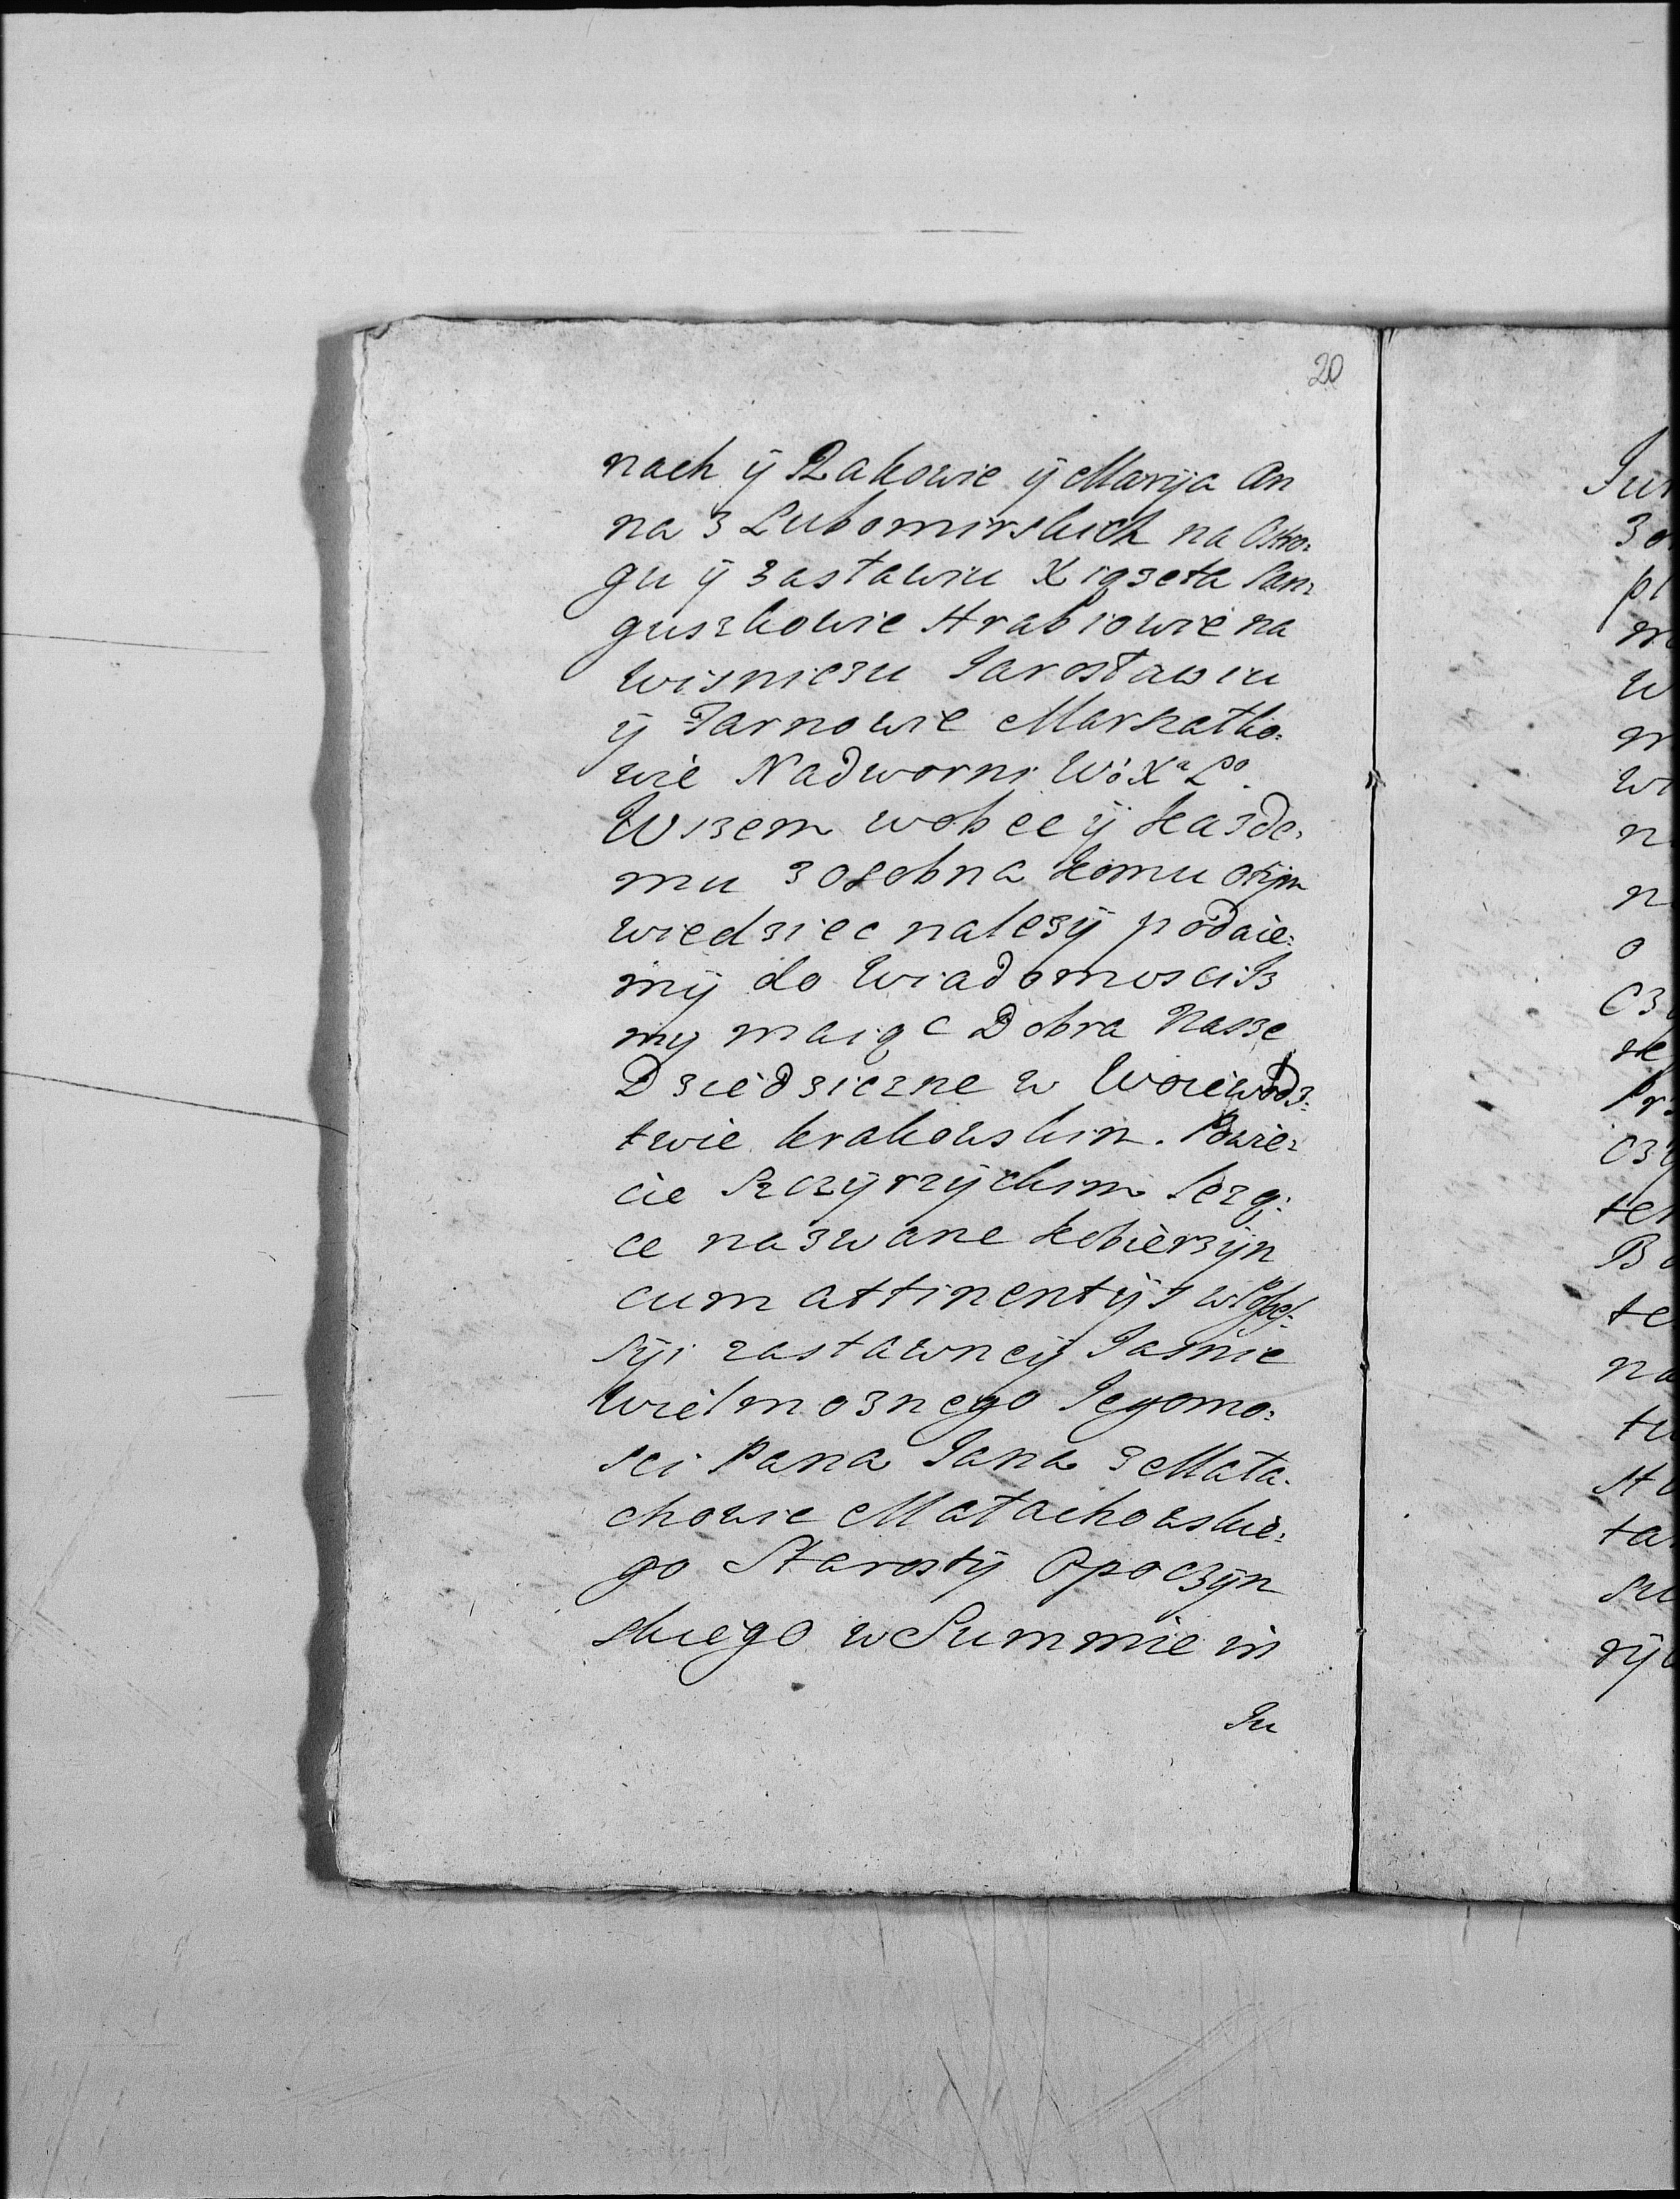 20
nach ÿ Rakowie ÿ Marÿa An
na z Lubomirskich na Ostro:
gu ÿ zasławiu Xiązęta San:
guszkowie Hrabiowie na
wisniczu Jarosławiu
ÿ Tarnowie Marszałko:
wie Nadworni W: Xa Lo.
Wszem wobec ÿ każde:
mu zosobna komu otÿm
wiedziec nalezÿ podaie:
mÿ do wiadomosci Jz
my maiąc Dobra Nasze
Dziedziczne w Woiewodz:
twie krakowskim. Powie:
cie Szczÿrzÿckim leżą:
ce nazwane kobierzÿn
cum attinentÿs w Posses:
sÿi zastawneÿ Jasnie
wielmoznego Jegomo:
sci Pana Jana z Mała:
chowic Małachowskie:
go Starostÿ Opoczÿn
skiego w Summie in
Ju
Sur
zo
pi
m
w
m
wi
n
n
o
cz
sk
Pr
czÿ
ter
B
te
na
tu
st
ta
su
rÿ